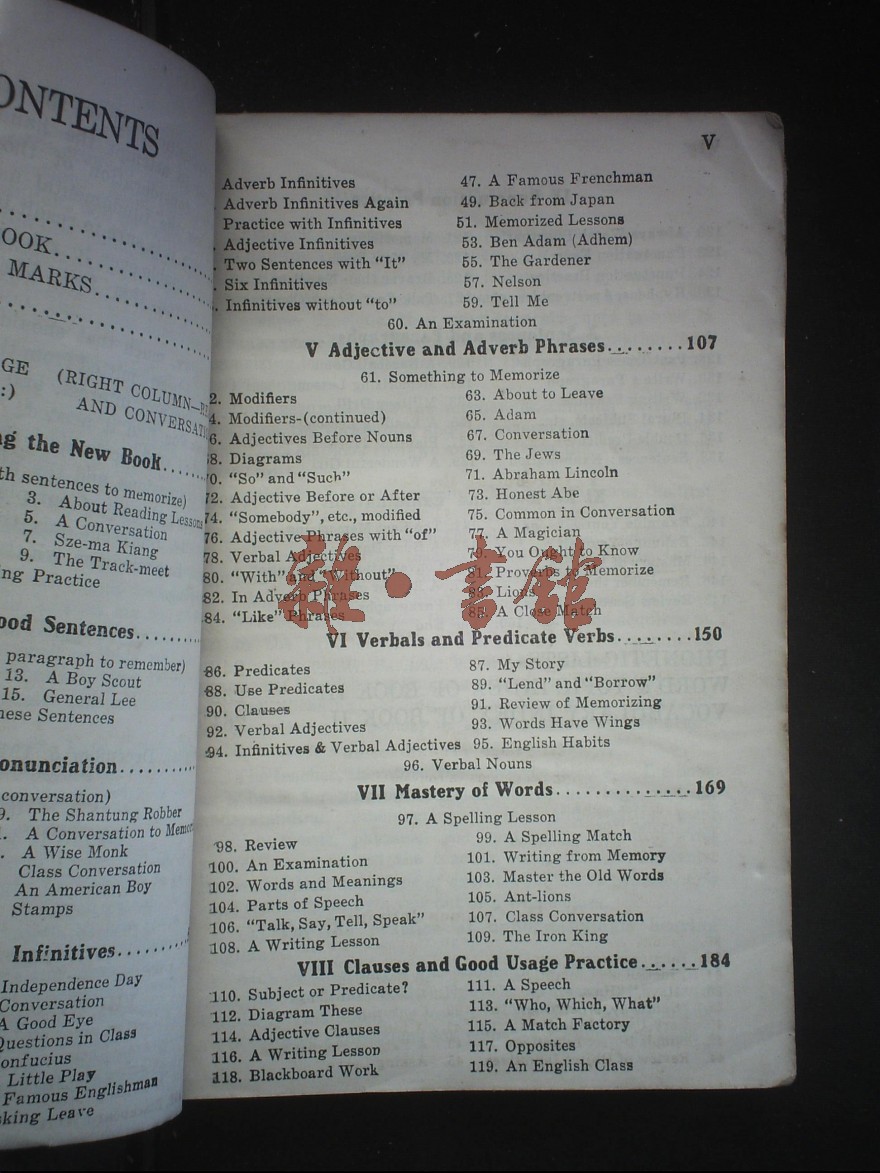 CONTENTS
OOK
MARKS
GE (RIGHT COLUMN—RE
:) AND CONVERSATI
ng the New Book
th sentences to memorize)
3. About Reading Lessons
5. A Conversation
7. Sze-ma Kiang
9. The Track-meet
ing Practice
ood Sentences
paragraph to remember)
13. A Boy Scout
15. General Lee
hese Sentences
onunciation
conversation)
9. The Shantung Robber
1. A Conversation to Memor
A Wise Monk
Class Conversation
An American Boy
Stamps
Infinitives
Independence Day
Conversation
A Good Eye
Questions in Class
onfucius
Little Play
Famous Englishman
sking Leave
V
Adverb Infinitives 47. A Famous Frenchman
Adverb Infinitives Again 49. Back from Japan
Practice with Infinitives 51. Memorized Lessons
Adjective Infinitives 53. Ben Adam (Adhem)
Two Sentences with “It” 55. The Gardener
Six Infinitives 57. Nelson
Infinitives without “to” 59. Tell Me
60. An Examination
V Adjective and Adverb Phrases.........107
61. Something to Memorize
2. Modifiers 63. About to Leave
4. Modifiers-(continued) 65. Adam
6. Adjectives Before Nouns 67. Conversation
8. Diagrams 69. The Jews
70. “So” and “Such” 71. Abraham Lincoln
72. Adjective Before or After 73. Honest Abe
74. “Somebody”, etc., modified 75. Common in Conversation
76. Adjective Phrases with “of” 77. A Magician
78. Verbal Adjectives 79. You Ought to Know
80. “With” and “Without” 81. Proverbs to Memorize
82. In Adverb Phrases 83. Lions
84. “Like” Phrases 85. A Close Match
雜·書館
VI Verbals and Predicate Verbs........150
86. Predicates 87. My Story
88. Use Predicates 89. “Lend” and “Borrow”
90. Clauses 91. Review of Memorizing
92. Verbal Adjectives 93. Words Have Wings
94. Infinitives & Verbal Adjectives 95. English Habits
96. Verbal Nouns
VII Mastery of Words..............169
97. A Spelling Lesson
98. Review 99. A Spelling Match
100. An Examination 101. Writing from Memory
102. Words and Meanings 103. Master the Old Words
104. Parts of Speech 105. Ant-lions
106. “Talk, Say, Tell, Speak” 107. Class Conversation
108. A Writing Lesson 109. The Iron King
VIII Clauses and Good Usage Practice......184
110. Subject or Predicate? 111. A Speech
112. Diagram These 113. “Who, Which, What”
114. Adjective Clauses 115. A Match Factory
116. A Writing Lesson 117. Opposites
118. Blackboard Work 119. An English Class